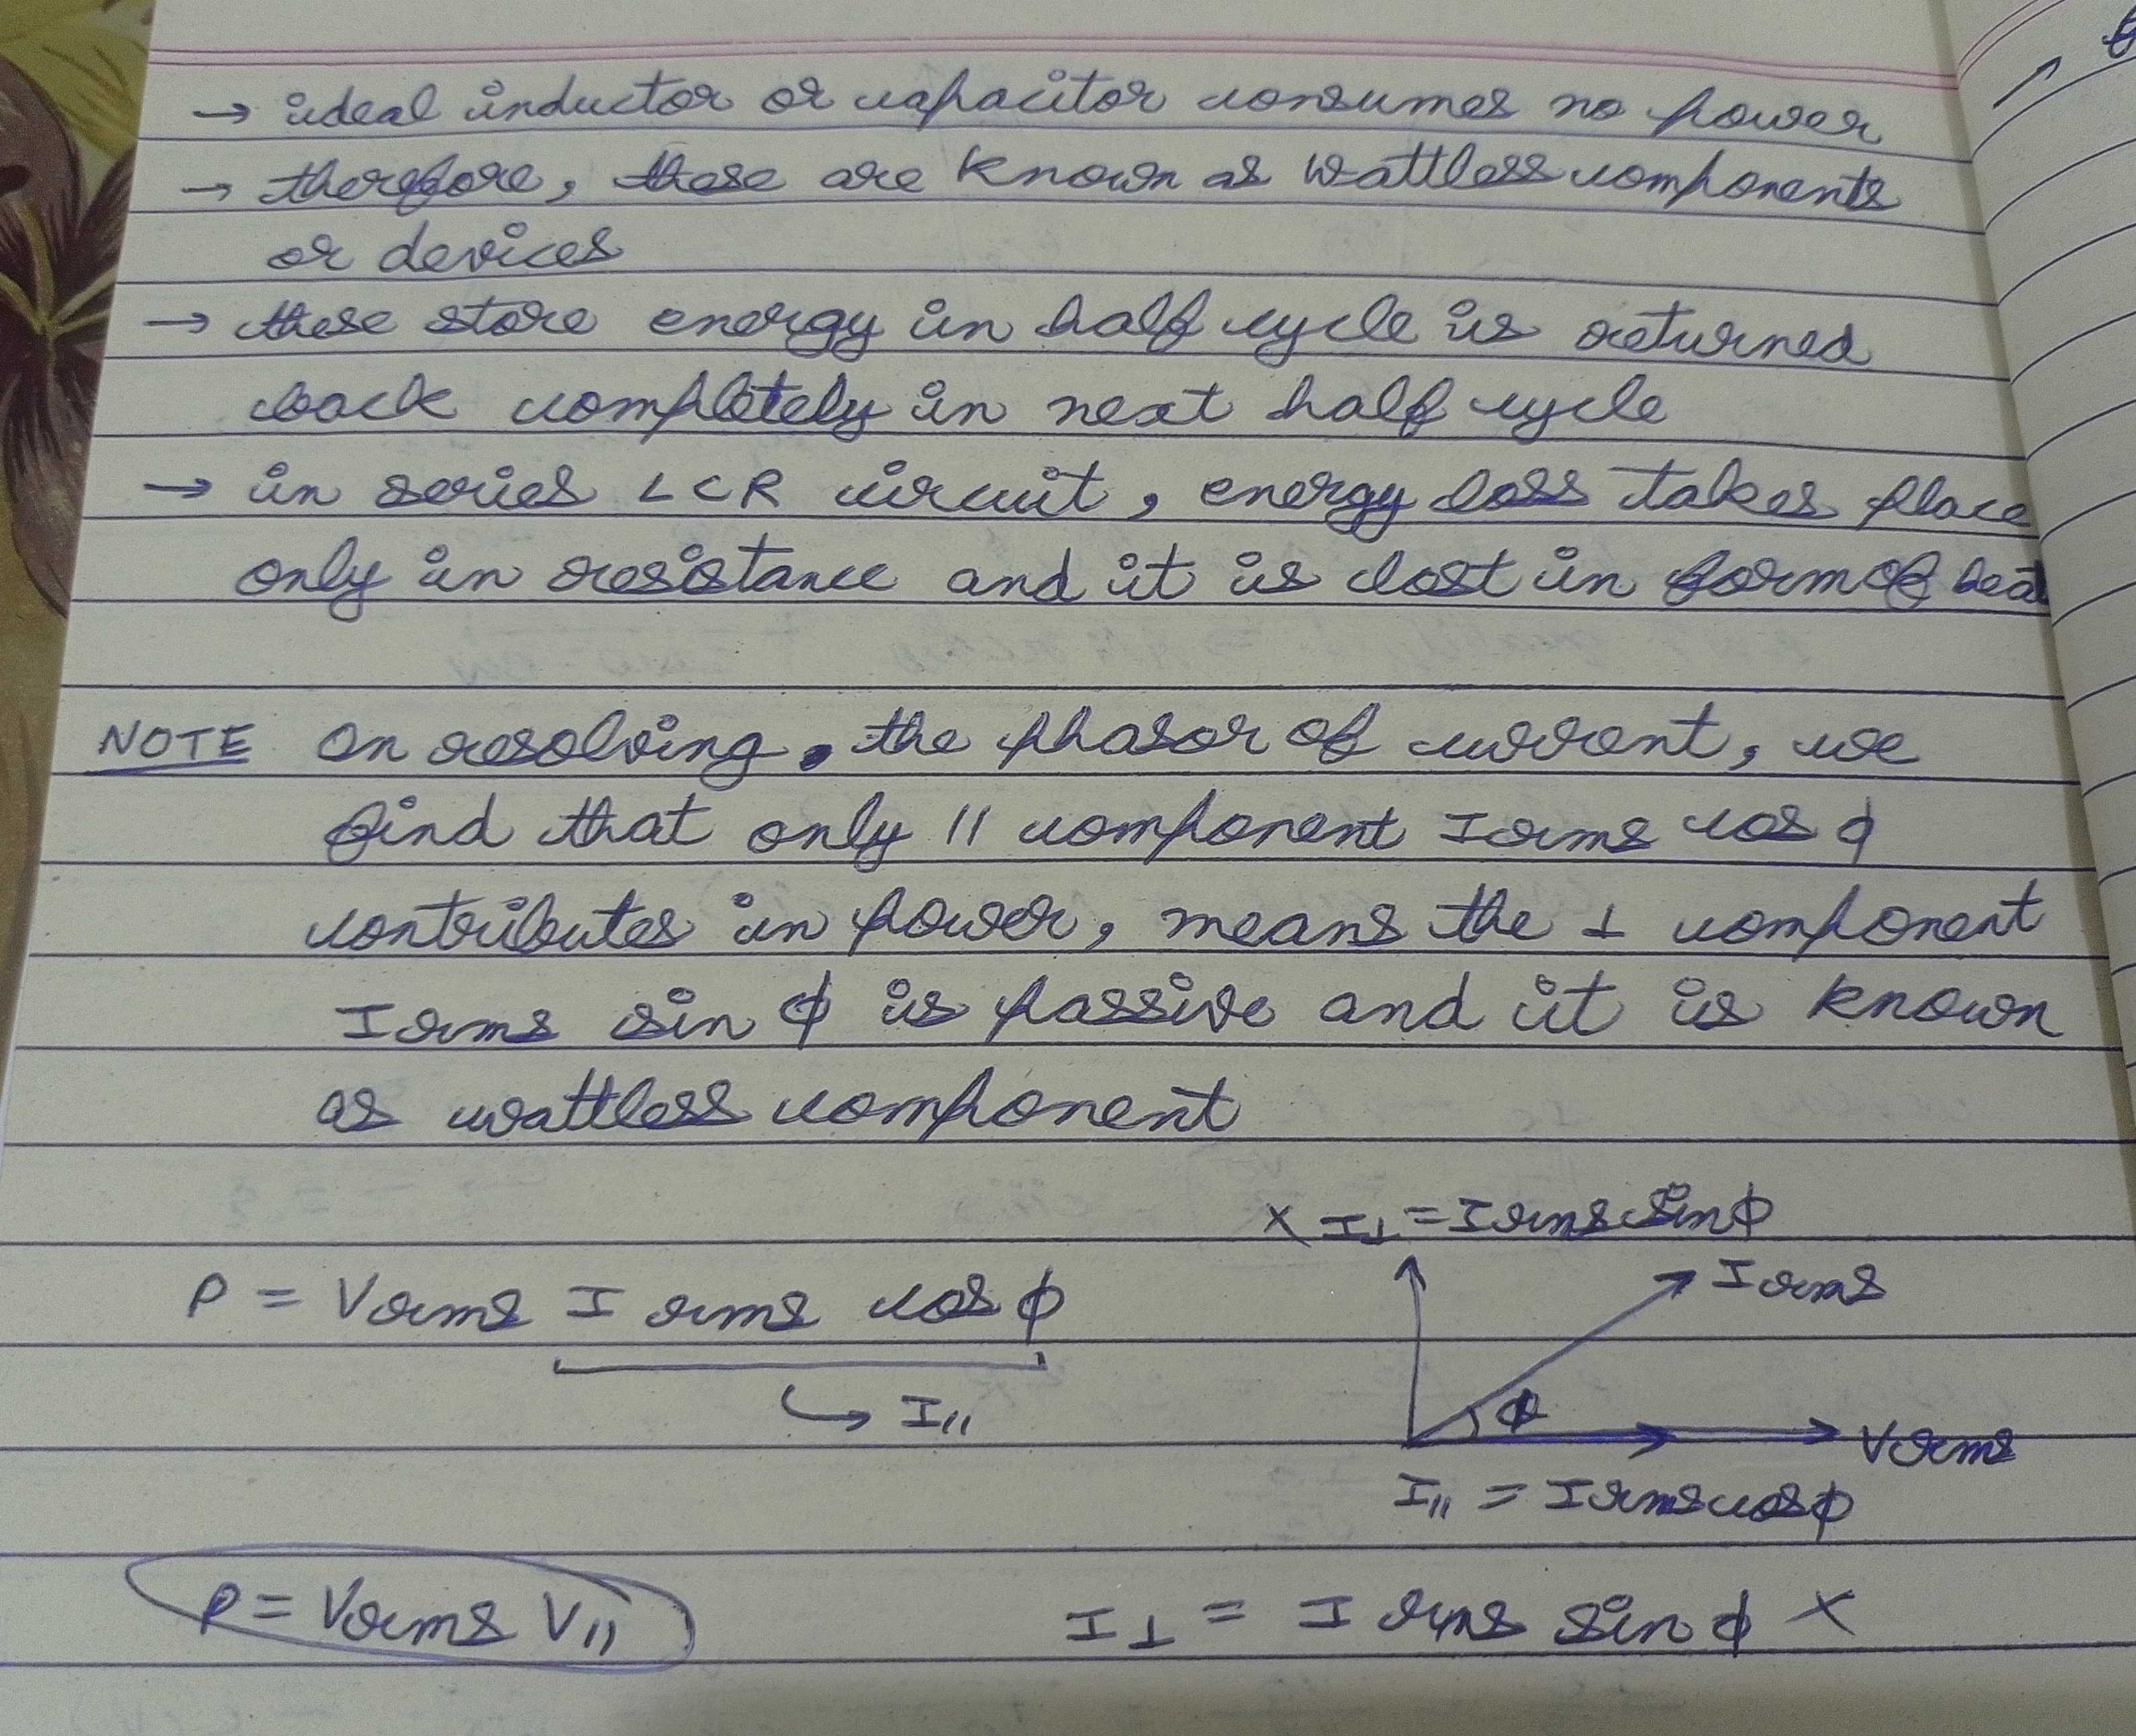 → ideal inductor or capacitor consumes no power
→ therefore, these are known as wattless components
or devices
→ these store energy in half cycle is returned
back completely in next half cycle
→ in series LCR circuit, energy loss takes place
only in resistance and it is lost in form of heat
NOTE On resolving, the phasor of current, we
find that only || component Irms cos ϕ
contributes in power, means the ⊥ component
Irms sin ϕ is passive and it is known
as wattless component
x I⊥ = Irms sin ϕ
Irms
P = Vrms I rms cos ϕ
↪ I||
ϕ
Vrms
I|| = Irms cos ϕ
P = Vrms V||
I⊥ = I rms sin ϕ x